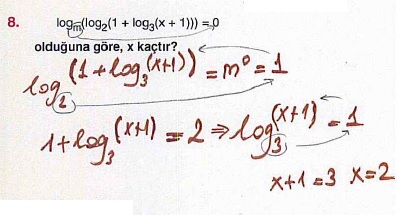 8. log_m(log_2(1 + log_3(x + 1))) = 0
olduğuna göre, x kaçtır?
log_2(1+log_3(x+1)) = m^0 = 1
1+log_3(x+1) = 2 ⇒ log_3(x+1) = 1
x+1=3 x=2